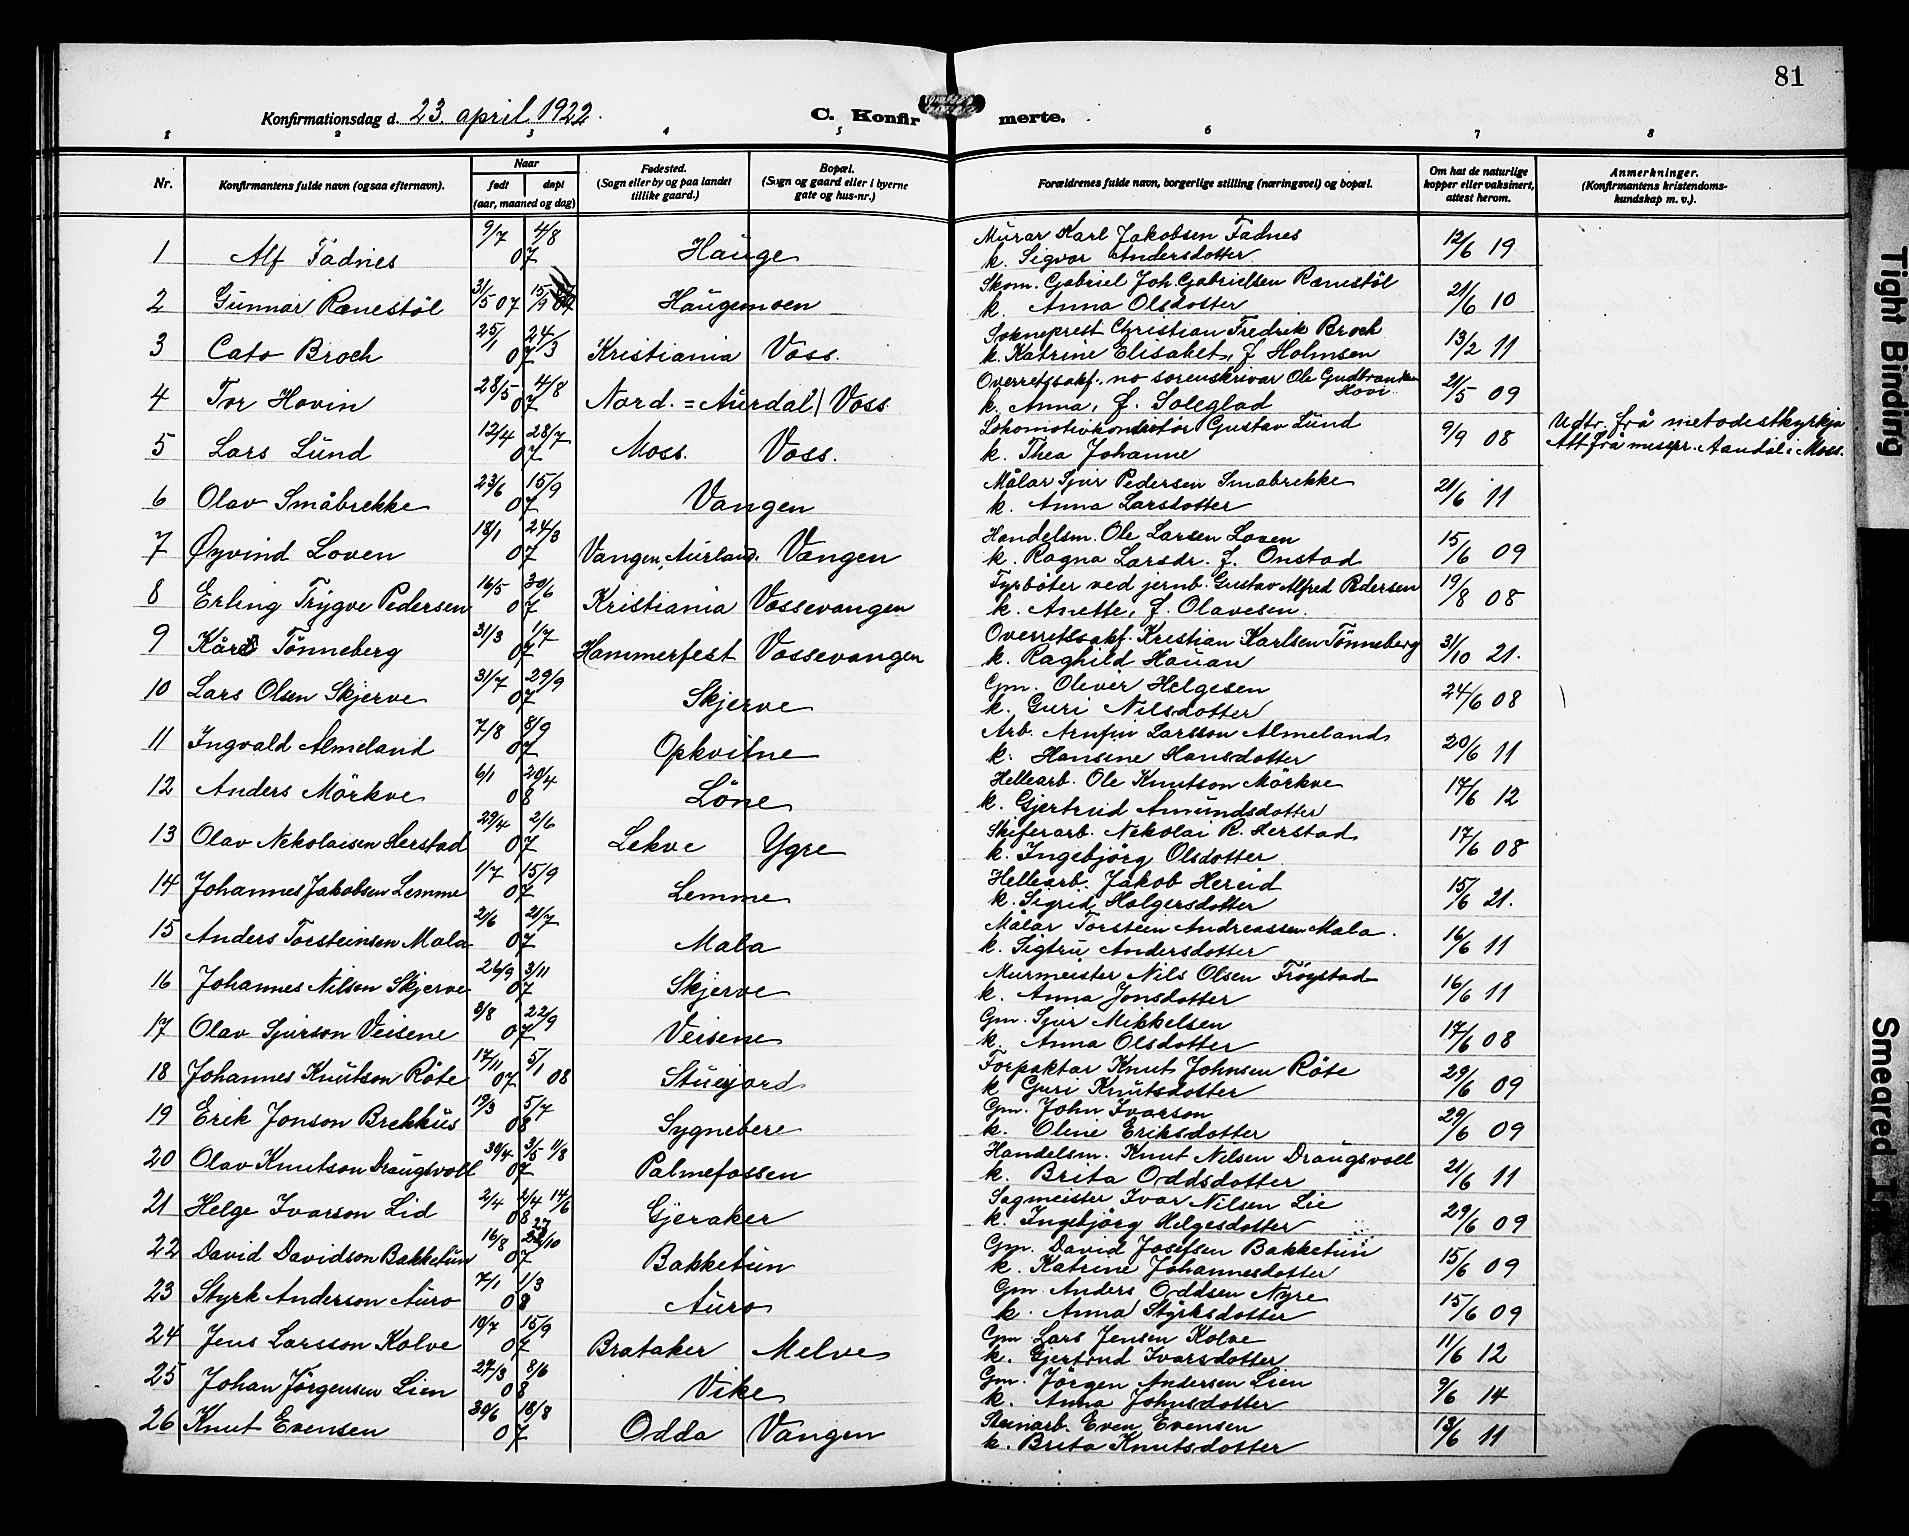 81
Konfirmationsdag d. 23. april 1922.
C. Konfirmerte.
1 2 3 4 5 6 7 8
Nr.
Konfirmantens fulde navn (ogsaa efternavn).
Naar
født døpt
(aar, maaned og dag)
Fødested.
(Sogn eller by og paa landet
tillike gaard.)
Bopæl.
(Sogn og gaard eller i byerne
gate og hus-nr.)
Forældrenes fulde navn, borgerlige stilling (næringsvei) og bopæl.
Om hat de naturlige
kopper eller vaksinert,
attest herom.
Anmerkninger.
(Konfirmantens kristendoms-
kundskap m. v.).
1 Alf Fadnes 9/7 4/8 07 Hauge Murar Karl Jakobsen Fadnes 12/6 19
k. Sigvor Andersdotter
2 Gunnar Rønestøl 31/5 07 15/9 Haugemoen Skom. Gabriel Joh. Gabrielsen Rønestøl 21/6 10
k. Anna Olsdotter
3 Cato Broch 25/1 24/3 07 Kristiania Voss. Sokneprest Christian Fredrik Broch 13/2 11
k. Katrine Elisabet, f. Holmsen
4 Tor Hovin 28/5 4/8 07 Nord.=Aurdal Voss Overretssakf. no sorenskrivar Ole Gudbranden Hovi 21/5 09
k. Anna, f. Soleglad
5 Lars Lund 12/4 28/7 07 Moss. Voss. Lokomotivkonstrktör Gustav Lund 9/9 08 Udtr. frå metodestkyrkja
k. Thea Johanne Att frå mespr. Aandal i Moss.
6 Olav Småbrekke 23/6 15/9 07 Vangen Målar Sjur Pedersen Småbrekke 21/6 11
k. Anna Larsdotter
7 Øyvind Loven 18/1 24/3 07 Vangen, Aurland. Vangen Handelsm. Ole Larsen Loven 15/6 09
k. Ragna Larsdr. f. Onstad
8 Erling Trygve Pedersen 16/5 30/6 07 Kristiania Vossevangen Fyrbøter ved jernb. Gustav Alfred Pedersen 19/8 08
k. Anette, f. Olavesen.
9 Kåre Tönneberg 31/3 1/7 07 Hammerfest Vossevangen Overretssakf. Kristian Karlsen Tönneberg 31/10 21.
k. Raghild Hauan
10 Lars Olsen Skjerve 31/7 29/9 07 Skjerve Gm. Oliver Helgesen 24/6 08
k. Guri Nilsdotter
11 Ingvald Almeland 7/8 8/9 07 Opkvitne Arb. Arnfin Larsson Almeland 20/6 11
k. Hansine Hansdotter
12 Anders Mörkve 6/1 20/4 08 Löne Hellearb. Ole Knutson Mörkve 17/6 12
k. Gjertrud Amundsdotter
13 Olav Nekolaisen Herstad 29/4 2/6 07 Lekve Ygre Skiferarb. Nekolai R. Herstad 17/6 08
k. Ingebjörg Olsdotter
14 Johannes Jakobsen Lemme 1/7 15/9 07 Lemme Hellearb. Jakob Hereid 15/6 21.
k. Sigrid Holgersdotter
15 Anders Torsteinsen Mala 2/6 21/7 07 Mala Målar Torstein Andreassen Mala. 16/6 11
k. Sigtru Andersdotter
16 Johannes Nilsen Skjerve 26/9 3/11 07 Skjerve Murmeister Nils Olsen Tröystad 16/6 11
k. Anna Jonsdotter
17 Olav Sjurson Veisene 8/8 22/9 07 Veisene Gm. Sjur Mikkelsen 17/6 08
k. Anna Olsdotter
18 Johannes Knutson Röte 17/11 07 5/1 08 Stuejord Forpaktar Knut Johnsen Röte 29/6 09
k. Guri Knutsdotter
19 Erik Jonson Brekkus 19/3 5/7 08 Sygnebere Gm. John Ivarson 29/6 09
k. Oline Eriksdotter
20 Olav Knutson Draugsvoll 30/4 3/5 1/8 07 Palmefossen Handelsm. Knut Nilsen Draugsvoll 21/6 11
k. Brita Oddsdotter
21 Helge Ivarson Lid 2/4 2/4 14/6 08 Gjeraker Sagmeister Ivar Nilsen Lie 29/6 09
k. Ingebjörg Helgesdotter
22 David Davidson Bakketun 16/8 27/10 07 Bakketun Gm. David Josefsen Bakketun 15/6 09
k. Katrine Johannesdotter
23 Styrk Anderson Auro 7/1 1/3 08 Auro Gm. Anders Oddsen Nyre 15/6 09
k. Anna Styrksdotter
24 Jens Larsson Kolve 19/7 15/9 07 Brataker Melve Gm Lars Jensen Kolve 11/6 12
k. Gjertrud Ivarsdotter
25 Johan Jörgensen Lien 27/3 8/6 08 Vike Gm. Jörgen Andersen Lien 9/6 14
k. Anna Johnsdotter
26 Knut Evensen 30/6 18/8 07 Odda Vangen Steinarb. Even Evensen 13/6 11
k. Brita Knutsdotter
Tight Binding
Smeared Ink